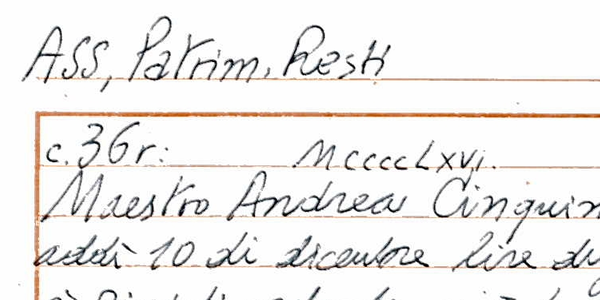 ASS, Patrim. Resti
c. 36 r: MCCCCLXVI.
Maestro Andrea
addì 10 di dicembre lire